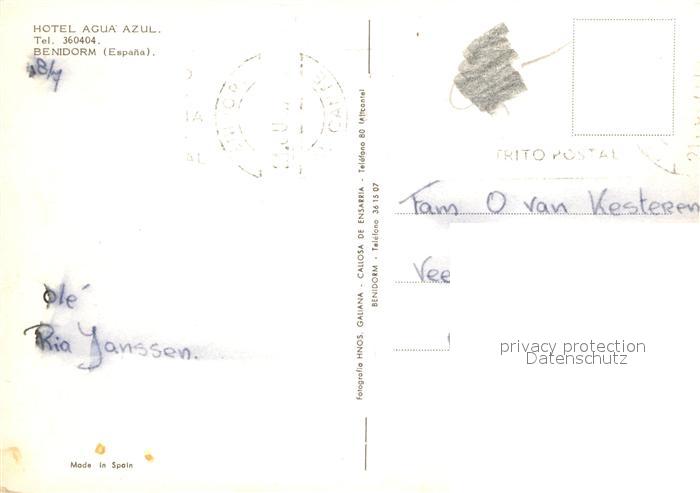 HOTEL AGUA AZUL.
Tel. 360404.
BENIDORM (España).
18/7
Olé
Ria Janssen.
Made in Spain
Fotografia HNOS. GALIANA - CALLOSA DE ENSARRIA - Teléfono 80 (Alicante)
BENIDORM - Teléfono 36 15 07
TRITO POSTAL
Fam O van Kesteren
Vee
privacy protection
Datenschutz